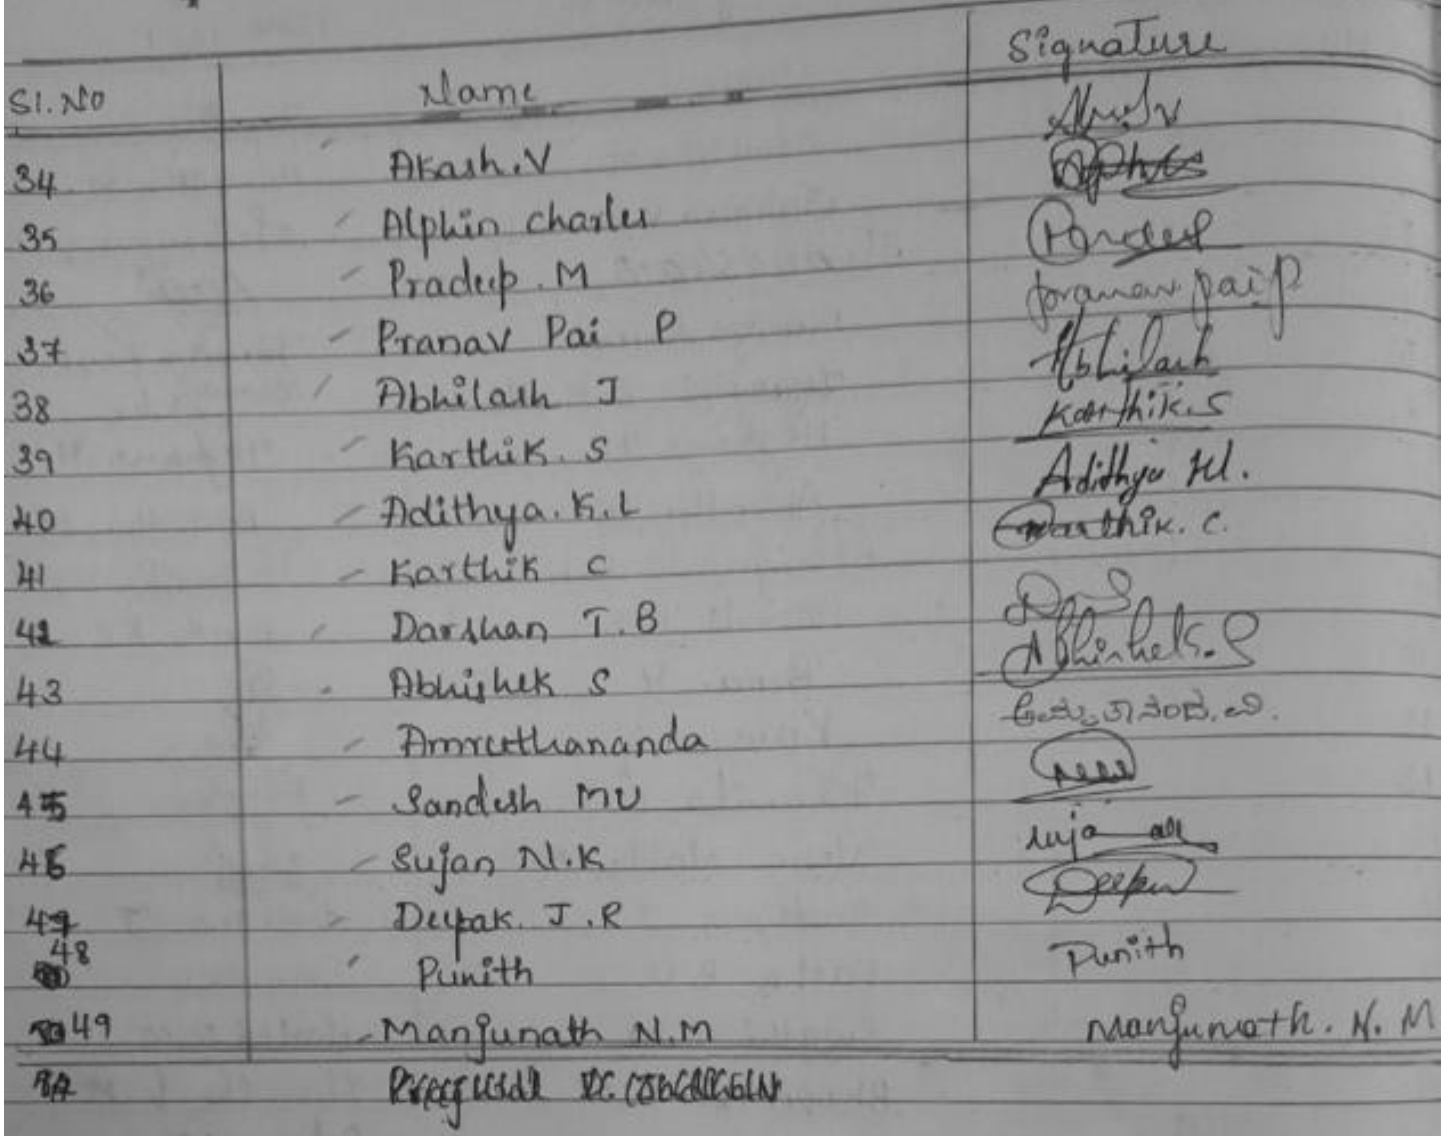 Sl.No Name Signature
34 Akash.V
35 Alphin charles
36 Pradeep.M
37 Pranav Pai P Pranav Pai P
38 Abhilash J Abhilash
39 Karthik.S Karthik.S
40 Adithya.K.L Adithya Kl.
41 Karthik C Karthik.C.
42 Darshan T.B
43 Abhishek S Abhishek.S
44 Amruthananda
45 Sandesh MU
46 Sujan N.K
47 Deepak.J.R Deepak
48 Punith Punith
49 Manjunath N.M Manjunath.N.M